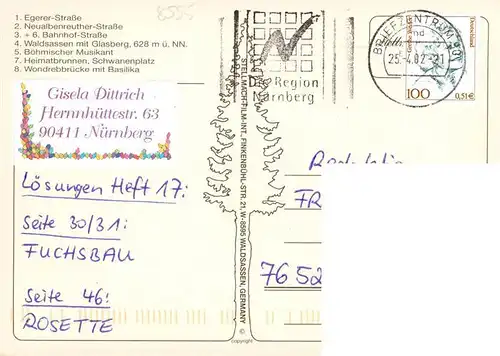 8525
1. Egerer-Straße
2. Neualbenreuther-Straße
3. + 6. Bahnhof-Straße
4. Waldsassen mit Glasberg, 628 m ü. NN.
5. Böhmischer Musikant
7. Heimatbrunnen, Schwanenplatz
8. Wondrebbrücke mit Basilika
Gisela Dittrich
Hernnhüttestr. 63
90411 Nürnberg
Die Region
Nürnberg
BRIEFZENTRUM 90
25.-4.02-21
Deutschland
100
0,51€
STELLMACH-FILM-INT., PINKENBÜHL-STR. 21, W-8595 WALDSASSEN, GERMANY
© copyright
Lösungen Heft 17:
Seite 30/31:
FUCHSBAU
Seite 46:
ROSETTE
FR
7652